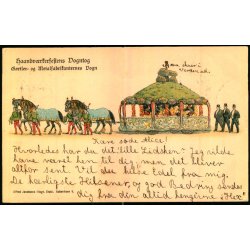 Haandværkerfestens Vogntog
Gørtler- og Metalfabrikanternes Vogn
Kære søde Alice!
Hvorledes har du det lille Lidsken? Jeg vilde
have været hen til dig, men det bliver
altfor sent. Vil du hilse Edel fra mig.
De hjærtligste Hilsener og god Bedring sendes
dig fra din altid hengivne "Hex"
Alfred Jacobsens lithogr. Etabl. København K.